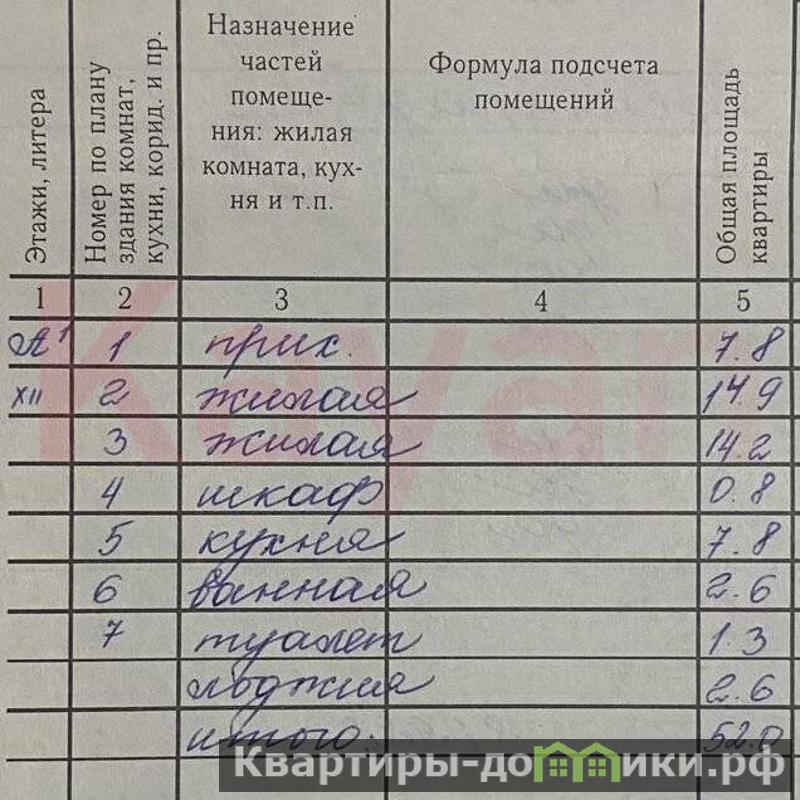 Этажи, литера
Номер по плану
здания комнат,
кухни, корид. и пр.
Назначение
частей
помеще-
ния: жилая
комната, кух-
ня и т.п.
Формула подсчета
помещений
Общая площадь
квартиры
1 2 3 4 5
А¹ 1 прих. 7.8
XII 2 жилая 14.9
3 жилая 14.2
4 шкаф 0.8
5 кухня 7.8
6 ванная 2.6
7 туалет 1.3
лоджия 2.6
итого: 52.0
Kayan
Квартиры-домики.рф